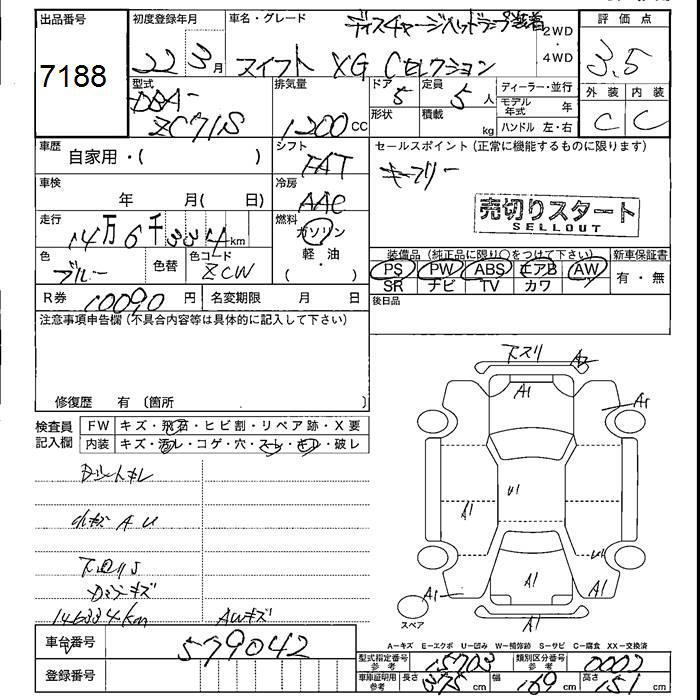 出品番号 初度登録年月 車名・グレード ディスチャージヘッドランプ装着
7188 22年3月 スイフト XG Cセレクション 2WD・4WD
評価点 3.5
型式 DBA-ZC71S 排気量 1200cc ドア 5 定員 5人 ディーラー・並行
形状 積載 kg モデル年式 年 ハンドル 左・右
外装 内装
C C
車歴 自家用・( ) シフト FAT セールスポイント(正常に機能するものに限ります)
キーフリー
車検 年 月( 日) 冷房 AAC
売切りスタート
SELLOUT
走行 14万6千334km 燃料 ガソリン 軽・油 ( )
色 ブルー 色替 色コード ZCW
装備品(純正品に限り○をつけて下さい) 新車保証書
PS PW ABS エアB AW 有・無
SR ナビ TV カワ
R券 10090円 名変期限 月 日 後日品
注意事項申告欄(不具合内容等は具体的に記入して下さい)
修復歴 有 〔箇所 〕
検査員記入欄 FW キズ・飛石・ヒビ割・リペア跡・X要
内装 キズ・汚レ・コゲ・穴・スレ・キレ・破レ
下スリ A2
A1 A1
U1
A1
A1 A1
A1
スペア
A1
146334km AWキズ
A−キズ E−エクボ U−凹み W−補修跡 S−サビ C−腐食 XX−交換済
車台番号 579042
型式指定番号 参考 15703 類別区分番号 参考 0003
登録番号 車庫証明用 参考 長さ 375cm 幅 169cm 高さ 151cm